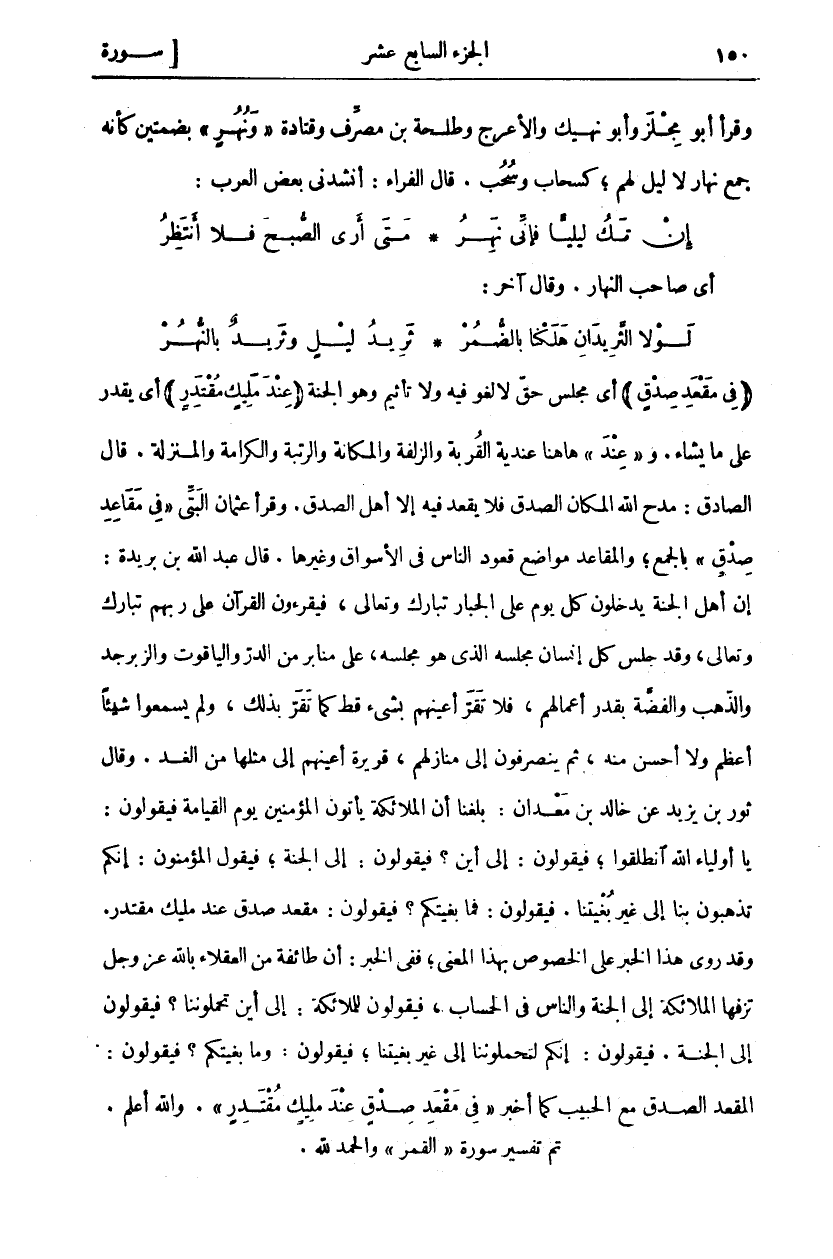 ١٥٠ الجزء السابع عشر [ ســورة
وقرأ أبو مِجْلَز وأبو نهيك والأعرج وطلحة بن مصرِّف وقتادة « وَنُهُرٍ » بضمتين كأنه
جمع نهار لا ليل لهم ؛ كسحاب وسُحُب . قال الفراء : أنشدنى بعض العرب :
إنْ تَكُ ليليًّا فإنِّى نَهِرُ * مَتَى أَرى الصُّبحَ فلا أَنتظِرُ
أى صاحب النهار . وقال آخر :
لَوْلا الثَّرِيدَانِ هَلَكْنا بالضُّمُرْ * ثَرِيدُ لَيْلٍ وثَرِيدٌ بالنُّهُرْ
﴿ فِى مَقْعَدِ صِدْقٍ ﴾ أى مجلس حقّ لا لغو فيه ولا تأثيم وهو الجنة ﴿ عِنْدَ مَلِيكٍ مُقْتَدِرٍ ﴾ أى يقدر
على ما يشاء . و « عِنْدَ » هاهنا عندية القُربة والزلفة والمكانة والرتبة والكرامة والمنزلة . قال
الصادق : مدح الله المكان الصدق فلا يقعد فيه إلا أهل الصدق . وقرأ عثمان البَتِّى « فِى مَقَاعِدِ
صِدْقٍ » بالجمع ؛ والمقاعد مواضع قعود الناس فى الأسواق وغيرها . قال عبد الله بن بريدة :
إن أهل الجنة يدخلون كل يوم على الجبار تبارك وتعالى ، فيقرءون القرآن على ربهم تبارك
وتعالى ، وقد جلس كل إنسان مجلسه الذى هو مجلسه ، على منابر من الدرّ والياقوت والزبرجد
والذّهب والفضّة بقدر أعمالهم ، فلا تَقَرّ أعينهم بشىء قط كما تَقَرّ بذلك ، ولم يسمعوا شيئاً
أعظم ولا أحسن منه ، ثم ينصرفون إلى منازلهم ، قريرة أعينهم إلى مثلها من الغد . وقال
ثور بن يزيد عن خالد بن مَعْدان : بلغنا أن الملائكة يأتون المؤمنين يوم القيامة فيقولون :
يا أولياء الله آنطلقوا ؛ فيقولون : إلى أين ؟ فيقولون : إلى الجنة ؛ فيقول المؤمنون : إنكم
تذهبون بنا إلى غير بُغْيتنا . فيقولون : فما بغيتكم ؟ فيقولون : مقعد صدق عند مليك مقتدر .
وقد روى هذا الخبر على الخصوص بهذا المعنى ؛ ففى الخبر : أن طائفة من العقلاء بالله عز وجل
تزفها الملائكة إلى الجنة والناس فى الحساب ، فيقولون للملائكة : إلى أين تحملوننا ؟ فيقولون
إلى الجنة . فيقولون : إنكم لتحملوننا إلى غير بغيتنا ؛ فيقولون : وما بغيتكم ؟ فيقولون :
المقعد الصدق مع الحبيب كما أخبر « فِى مَقْعَدِ صِدْقٍ عِنْدَ مَلِيكٍ مُقْتَدِرٍ » . والله أعلم .
تم تفسير سورة « القمر » والحمد لله .